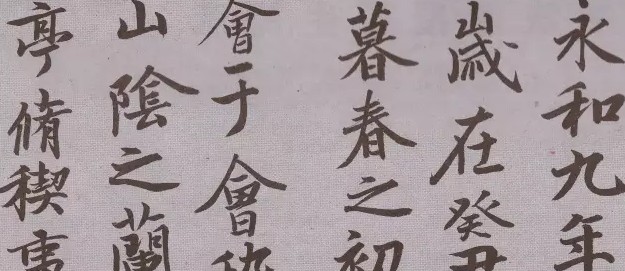 永和九年
歲在癸丑
暮春之初
會于會稽
山陰之蘭
亭脩稧事